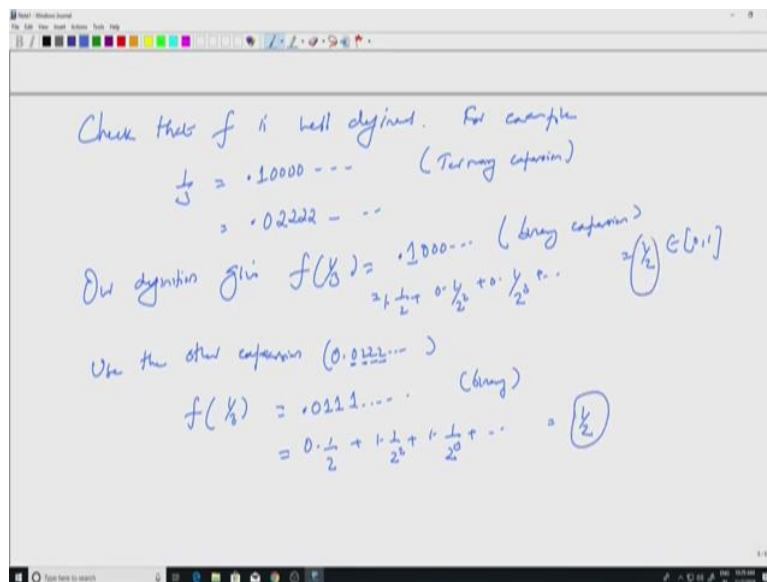 Note1 - Windows Journal
File Edit View Insert Actions Tools Help
Check that f is well defined. For example
1/3 = .10000 --- (Ternary expansion)
= .02222 - --
Our definition gives f(1/3) = .1000... (binary expansion)
= 1. 1/2 + 0. 1/2² + 0. 1/2³ + .. = 1/2 ∈ [0,1]
Use the other expansion (0.0222... )
f(1/3) = .0111.... (binary)
= 0. 1/2 + 1. 1/2² + 1. 1/2³ + .. = 1/2
Type here to search